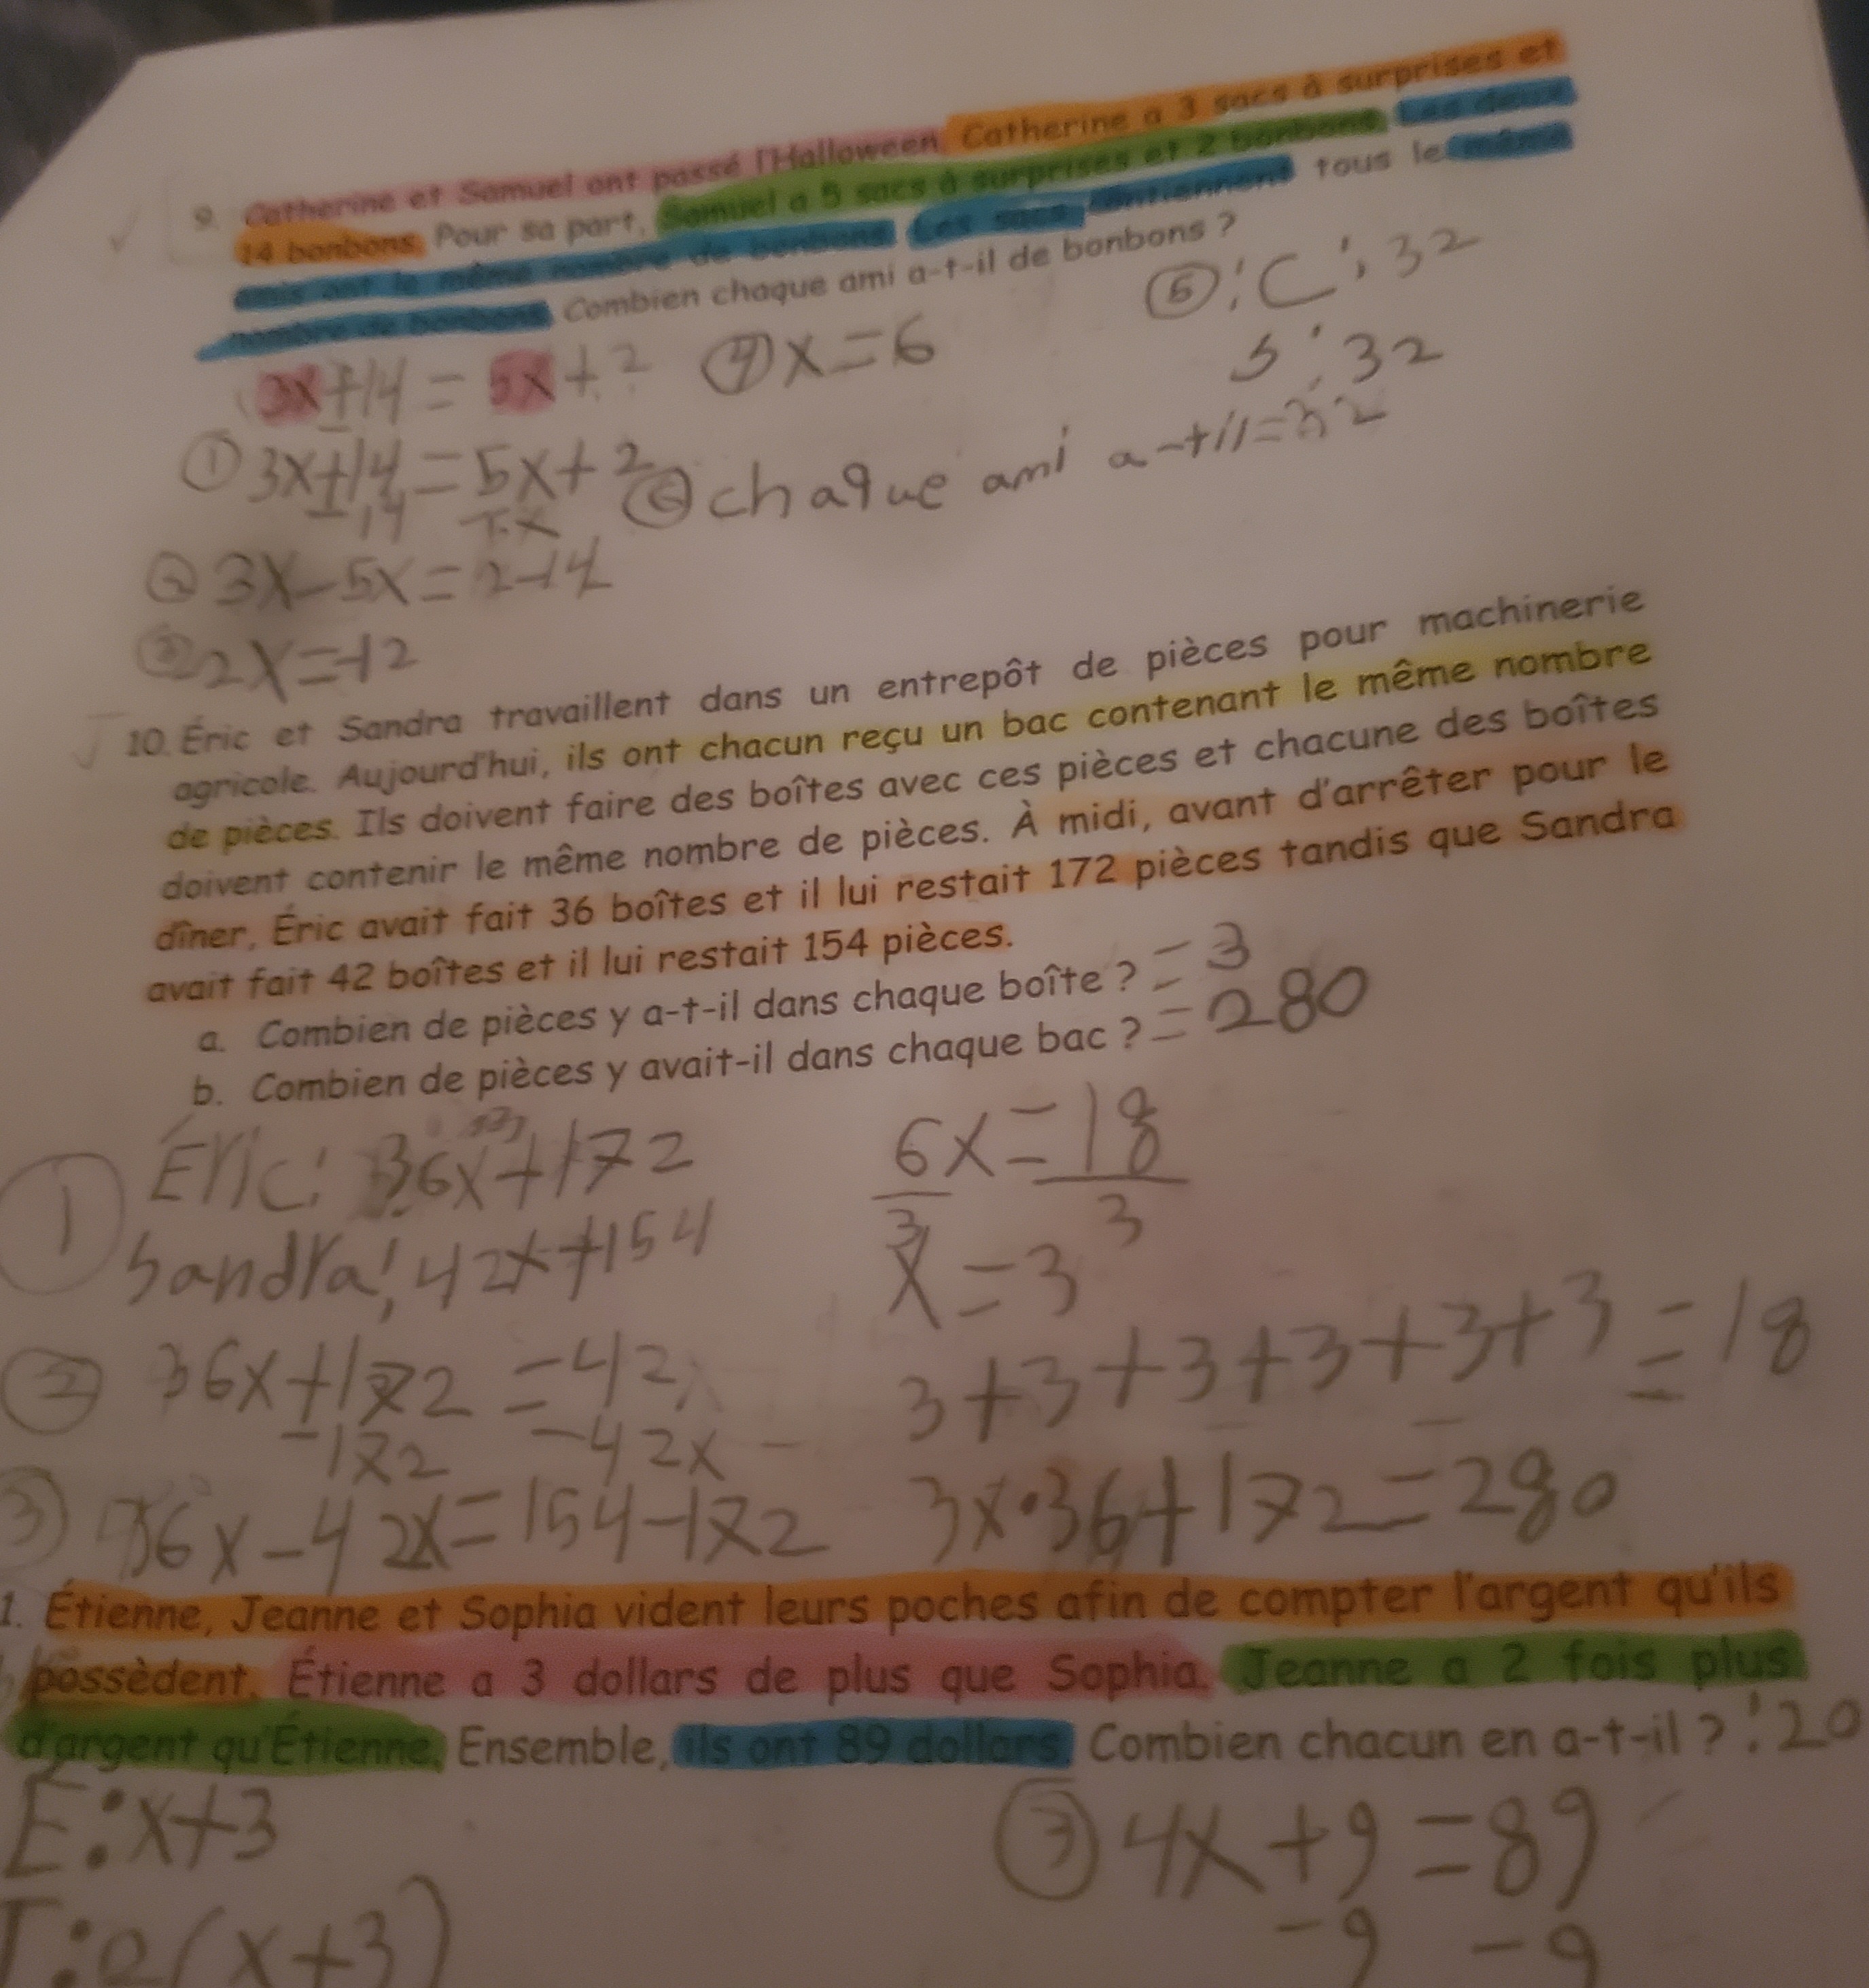 9. Catherine et Samuel ont passé l'Halloween. Catherine a 3 sacs à surprises et
14 bonbons. Pour sa part, Samuel a 5 sacs à surprises et 2 bonbons. Les deux
amis ont le même nombre de bonbons. Les sacs contiennent tous le même
nombre de bonbons. Combien chaque ami a-t-il de bonbons ?
3x+14 = 5x+2
④ x=6
⑤: C: 32
S: 32
① 3x+14=5x+2
-14 -5x
⑥ chaque ami a-til=32
② 3x-5x=2-14
③ 2x=-12
10. Éric et Sandra travaillent dans un entrepôt de pièces pour machinerie
agricole. Aujourd'hui, ils ont chacun reçu un bac contenant le même nombre
de pièces. Ils doivent faire des boîtes avec ces pièces et chacune des boîtes
doivent contenir le même nombre de pièces. À midi, avant d'arrêter pour le
dîner, Éric avait fait 36 boîtes et il lui restait 172 pièces tandis que Sandra
avait fait 42 boîtes et il lui restait 154 pièces.
a. Combien de pièces y a-t-il dans chaque boîte ? = 3
b. Combien de pièces y avait-il dans chaque bac ? = 280
① Éric: 36x+172
Sandra: 42x+154
② 36x+172=42x
-172 -42x
③ 36x-42x=154-172
6x=18
3 3
x=3
3+3+3+3+3+3=18
3x•36+172=280
1. Étienne, Jeanne et Sophia vident leurs poches afin de compter l'argent qu'ils
possèdent. Étienne a 3 dollars de plus que Sophia. Jeanne a 2 fois plus
d'argent qu'Étienne. Ensemble, ils ont 89 dollars. Combien chacun en a-t-il ? :20
E:x+3
③ 4x+9=89
-9 -9
J:2(x+3)